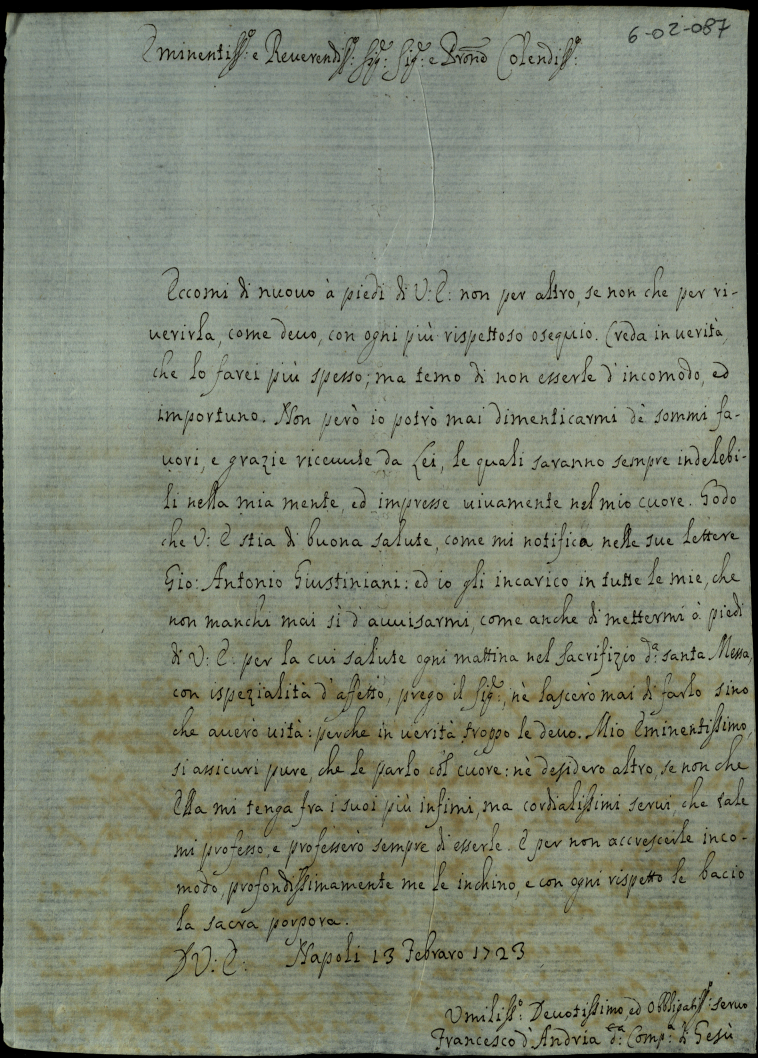 6-02-087
Eminentiss:º e Reuerendiss:º Sig:r Sig:r e Pron͠e Colendiss:º
Eccomi di nuouo à piedi di V: E: non per altro, se non che per ri-
uerirla, come deuo, con ogni più rispettoso osequio. Creda in uerità,
che lo farei più spesso; ma temo di non esserle d'incomodo, ed
importuno. Non però io potrò mai dimenticarmi dè sommi fa-
uori, e grazie riceuute da Lei, le quali saranno sempre indelebi-
li nella mia mente, ed impresse uiuamente nel mio cuore. Godo
che V: E stia di buona salute, come mi notifica nelle sue lettere
Gio: Antonio Giustiniani: ed io gli incarico in tutte le mie, che
non manchi mai sì d'auuisarmi, come anche di mettermi à piedi
di V: E: per la cui salute ogni mattina nel Sacrifizio d:ª santa Messa,
con ispezialità d'affetto, prego il Sig:r, nè lascerò mai di farlo sino
che auerò uità: perche in uerità troppo le deuo. Mio Eminentissimo,
si assicuri pure, che le parlo col cuore: nè desidero altro, se non che
Ella mi tenga fra i suoi più infimi, ma cordialissimi serui, che tale
mi professo, e professerò sempre di esserle. E per non accrescerle inco-
modo, profondissimamente me le inchino, e con ogni rispetto le bacio
la sacra porpora.
D V: E: Napoli 13 Febraro 1723
Vmiliss:º Deuotissimo, ed Obbligatiss:º seruo
Francesco d'Andria d:ª Comp:ª di Gesù